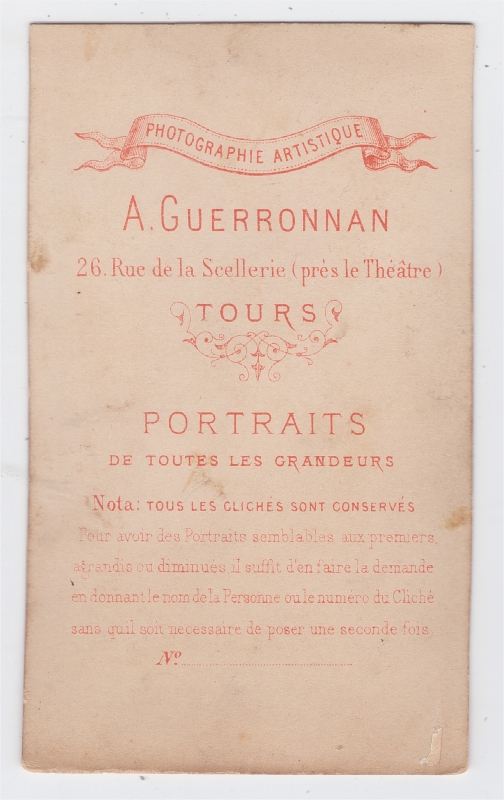 PHOTOGRAPHIE ARTISTIQUE
A. GUERRONNAN
26. Rue de la Scellerie (près le Théâtre)
TOURS
PORTRAITS
DE TOUTES LES GRANDEURS
Nota: TOUS LES CLICHÉS SONT CONSERVÉS
Pour avoir des Portraits semblables aux premiers,
agrandis ou diminués, il suffit d'en faire la demande
en donnant le nom de la Personne ou le numéro du Cliché
sans qu'il soit nécessaire de poser une seconde fois.
Nº